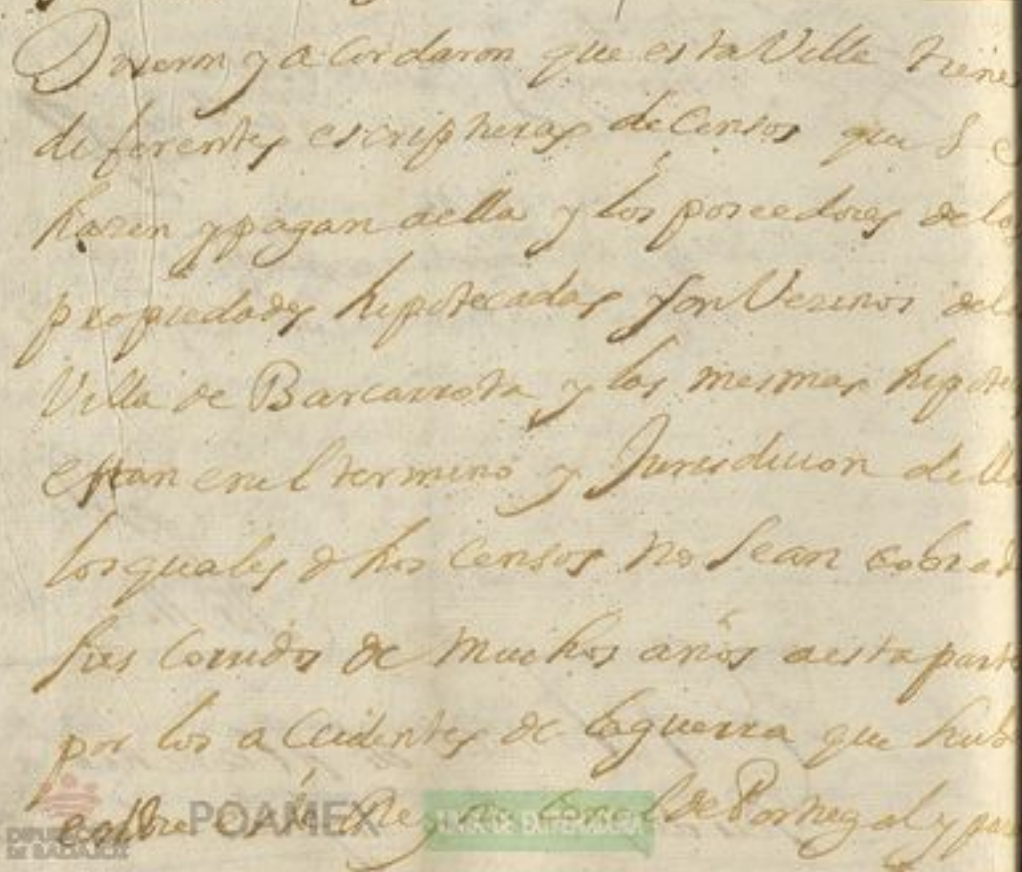 Dixeron y acordaron que esta Villa tiene
diferentes escripturas de Censos que Se
hazen y pagan aella y los poseedores de las
propiedades hipotecadas son Vezinos dela
Villa de Barcarrota y las mesmas hipote
estan en el termino y Jurisdicion della
los quales dhos Censos no Sean cobrad
sus Corridos de muchos años a esta parte
por los accidentes de la guerra que hub
entre este Reyno con el de Portugal y par
POAMEX
JUNTA DE EXTREMADURA
DIPUTACIÓN
DE BADAJOZ